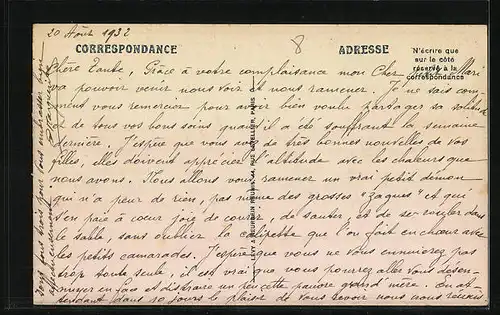 20 Août 1932
CORRESPONDANCE
ADRESSE
N'écrire que
sur le côté
réservé à la
correspondance
8
Chère Tante, Grâce à votre complaisance mon Cher Mari
va pouvoir venir nous voir et nous ramener. Je ne sais com-
ment vous remercier pour avoir bien voulu partager sa solitude
de tous vos bons soins quand il a été souffrant la semaine
dernière. J'espère que vous avez de très bonnes nouvelles de vos
filles, elles doivent apprécier l'altitude avec les chaleurs que
nous avons. Nous allons vous ramener un vrai petit démon
qui n'a peur de rien, pas même des grosses "Zagues" et qui
s'en paie à cœur joie de courir, de sauter, et de se rouler dans
le sable, sans oublier la que l'on fait en chœur avec
les petits camarades. J'espère que vous ne vous ennuierez pas
trop toute seule, il est vrai que vous pourrez aller vous désen-
nuyer en face et distraire un peu cette pauvre grand'mère. En at-
tendant dans 10 jours le plaisir de vous revoir nous nous
tous trois pour vous embrasser bien
affectueusement
LEVY & NEURDEIN RÉUNIS, 44, RUE LETELLIER, PARIS